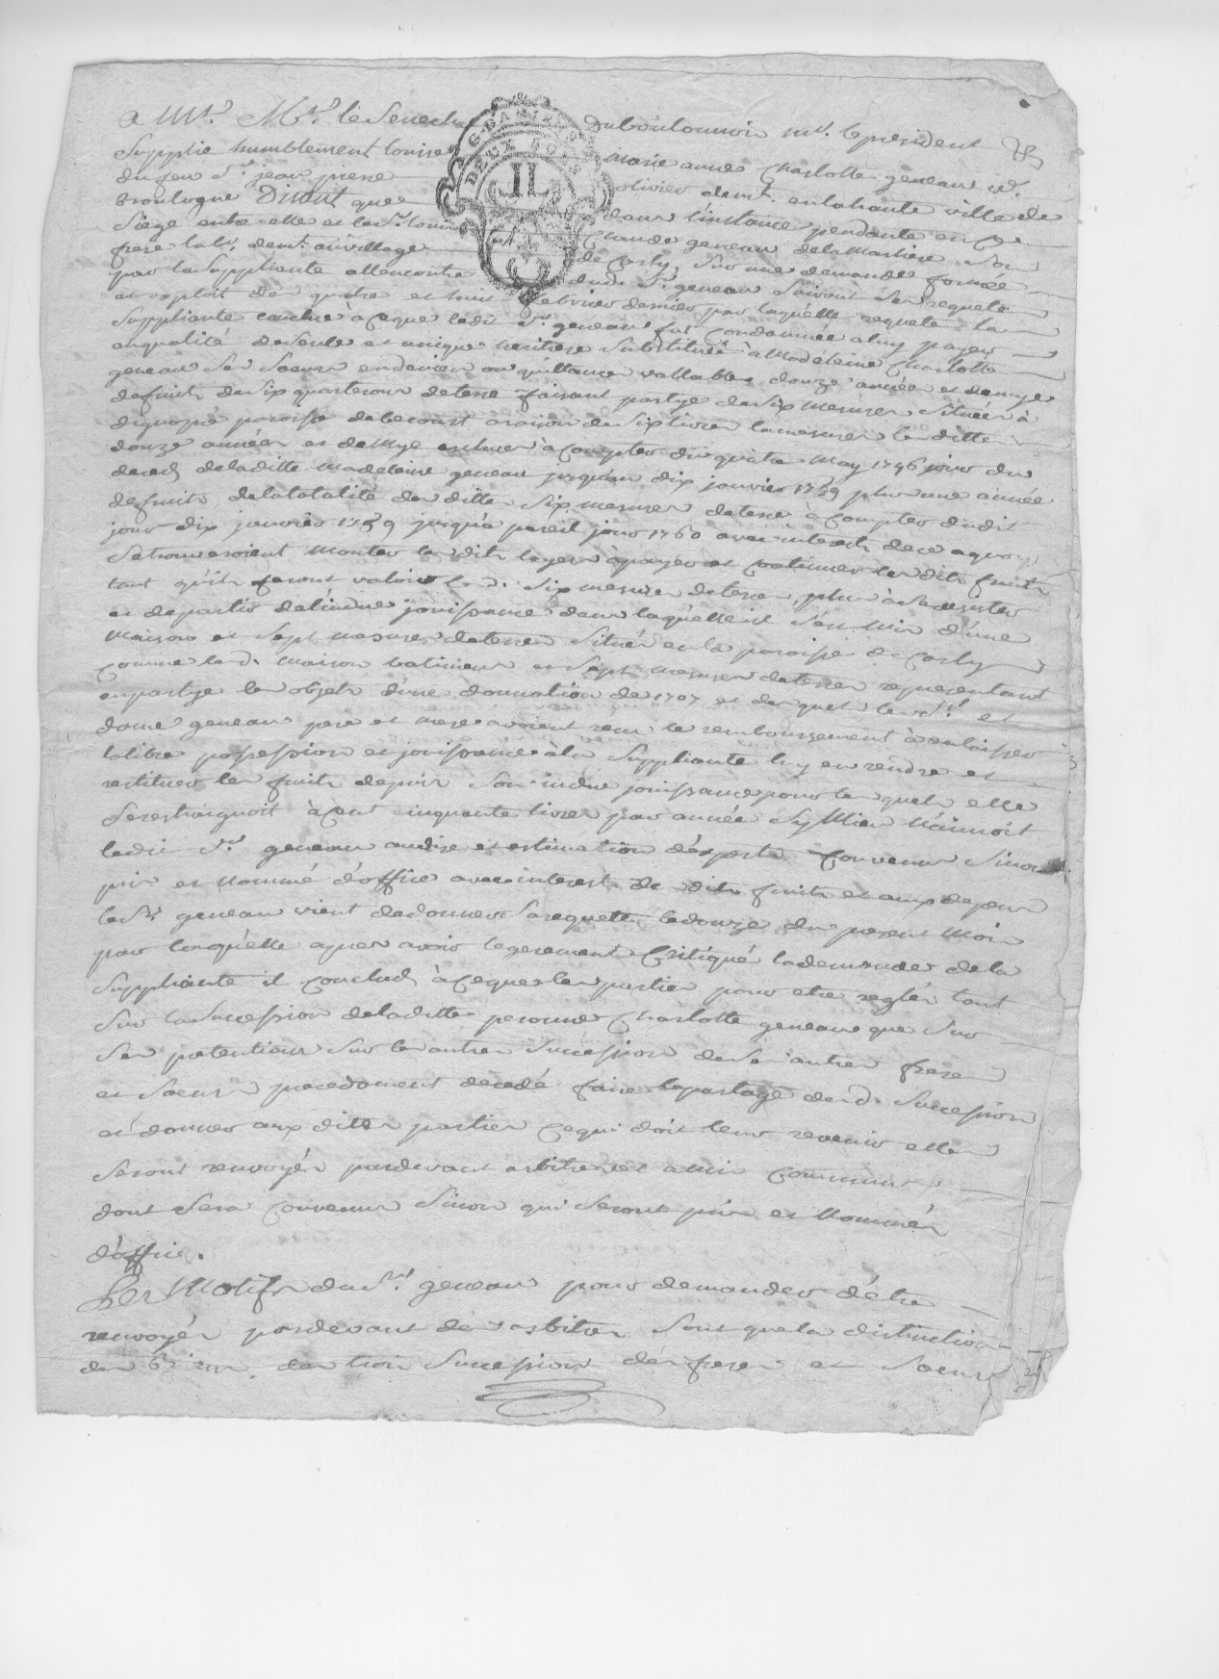 a Mr. Mr. le Senech duboulonnois Mr. le president &
Supplie humblement Louise Marie anne Charlotte geneau ve.
du feu Sr. jean pierre olivier demt. en la haute ville de
Boulogne Disant que dans l'instance pendante en ce
Siege entre elle et le Sr. Louis Claude geneau dela Marliere son
frere demt. au village de Carly, sur une demande formée
par la Suppliante allencontre dud. Sr. geneau Suivant Ses requete
et exploit des quatre et huit febvrier dernier par laquelle requete la
Suppliante conclue a ceque ledit Sr. geneau fut condamnée a luy payer
en qualité de Seule et unique heritiere Substituée à Madeleine Charlotte
geneau Sa Soeur en deniers ou quittances vallables douze années et demye
de fruits de Six quarterons de terre faisant partye de Six Mesures Située à
paroisse de becourt a raison de Six livres la mesure les dittes
douze années et demye echues à compter du quatre May 1746 jour du
deced de la ditte Madeleine geneau jusqu'au dix janvier 1759 plus une année
de fruits de la totalité des dittes Six Mesures de terre à compter dudit
jour dix janvier 1759 jusqu'a pareil jour 1760 avec interests de ce a quoy
Se trouveroient Monter les dits loyers à payer et continuer les dits fruits
tant qu'ils seront valoir les d. Six mesures de terre, plus à Se desister
et departir de l'indue jouissance dans laquelle il S'est Mis d'une
Maison et Sept Mesures de terres Située en la paroisse de Carly
Comme les d. Maison batimens et Sept Mesures de terres representant
en partye les objets d'une donnation de 1707 et des quels les Sr. et
dame geneau pere et mere avoient recu le remboursement à delaisser
la libre possession et jouissance à la Suppliante luy en rendre et
restituer les fruits depuis Son indue jouissance pour les quels elle
Se restraignoit à Cent cinquante livres par année Sy Mieux N'aimoit
ledit Sr. geneau audire et estimation d'experts Convenus Sinon
pris et Nommé d'office avec interests de dits fruits et aux depens
le Sr. geneau vient de donner Sa requete le douze du present Mois
par laquelle apres avoir legerement Critiqué la demande de la
Suppliante il conclud à ceque les parties pour etre reglés tant
Sur la Succession de la ditte Charlotte geneau que Sur
Ses pretentions Sur les autres Succession de Ses autres freres
et Soeurs precedament decedé faire le partage des d. Succession
et donner aux dittes parties ce qui doit leur revenir elles
Seront renvoyés pardevant arbitres et amis communs
dont Sera convenu Sinon qui Seront pris et Nommés
d'office.
Les Motifs du Sr. geneau pour demander d'être
renvoyés pardevant des arbitres Sont que la distinction
des biens des trois Succession des freres et Soeurs
G. D'AMIENS
DEUX SOLS
II